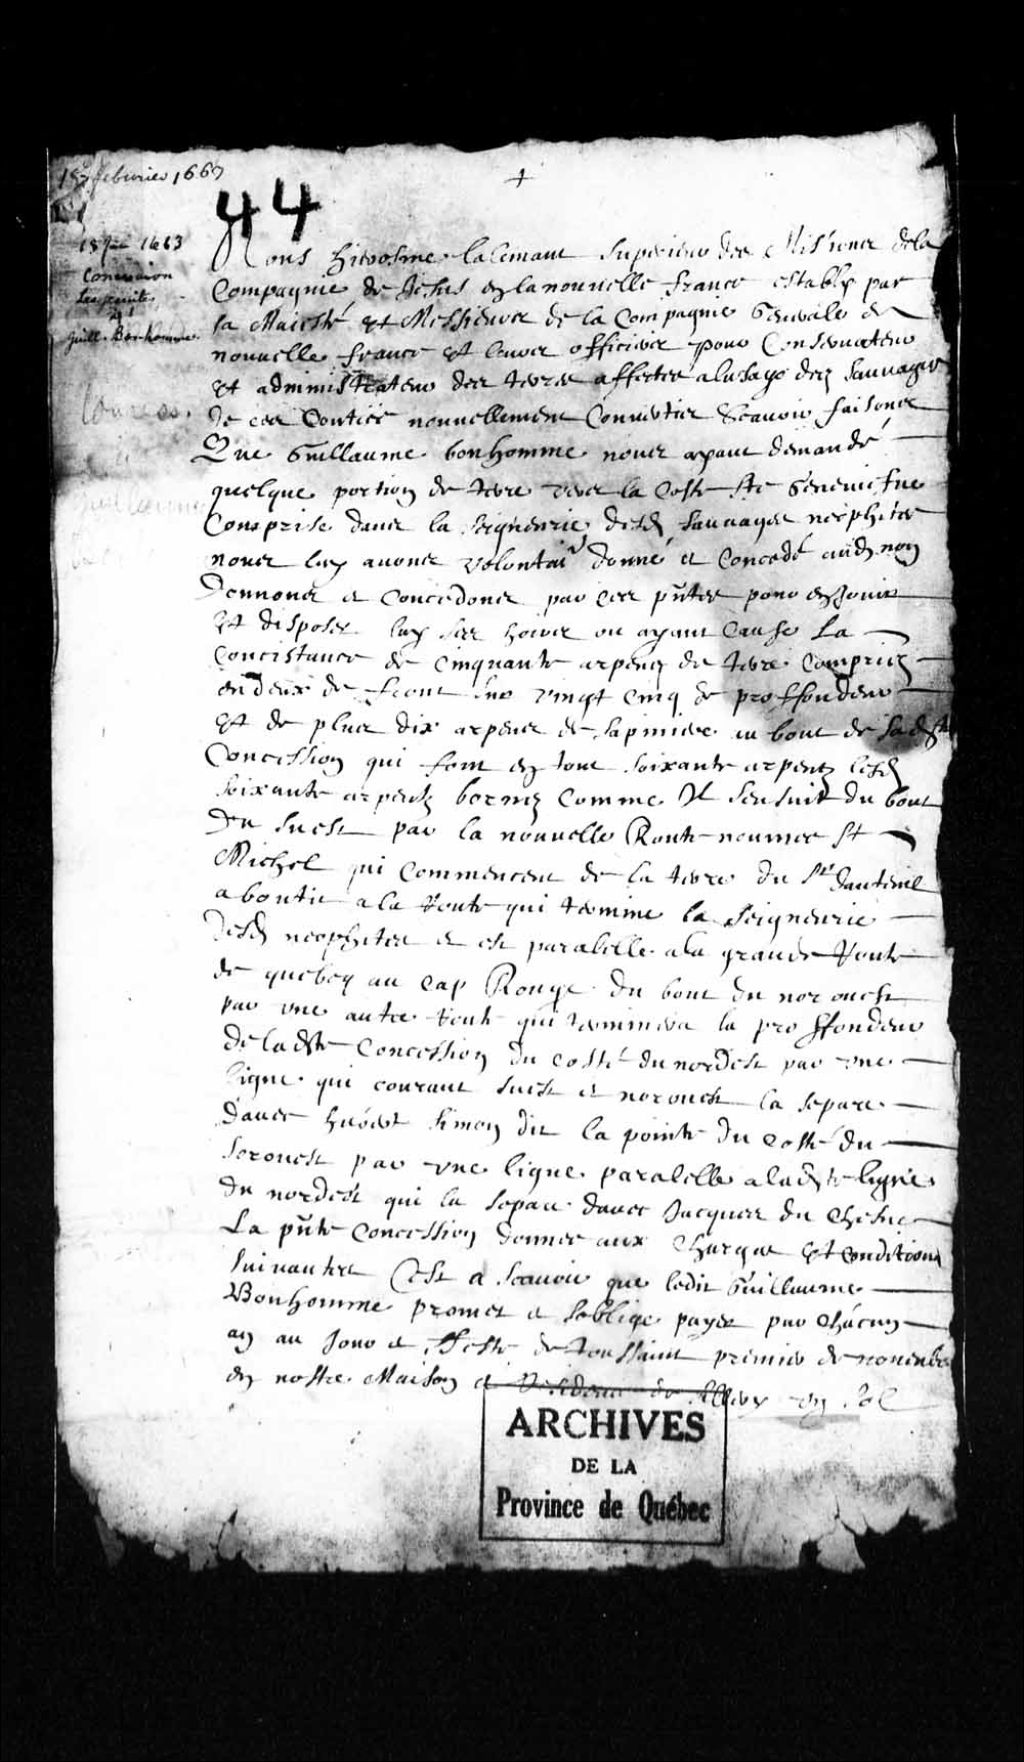 15 febvrier 1667
+
44
1663
Concession
Guill. Bonhomme
Nous Hierosme Lalemant Superieur des Missions dela
Compagnie de Jesus en la nouvelle france establÿ par
sa Maiesté et Messieurs de la Compagnie Generale de
nouvelle france et leurs officiers pour Conservateur
et administrateur des terres affectés a lusage des sauvages
de ces Contrées nouvellement Convertis Scavoir faisons
Que Guillaume bonhomme nous ayant demandé
quelque portion de terre vers la Coste Ste Geneviefve
Comprise dans la seigneurie desd sauvages neophites
nous luy avons volontairᵗ donné et Concedé aud nom
Donnons et Concedons par ces pñtes pour en Jouir
et disposer luy ses hoirs ou ayant Cause La
Concistance de Cinquante arpens de terre Compris
en deux de front sur vingt Cinq de proffondeur
et de plus dix arpens de sapiniere au bout de sadte
Concession qui font en tout soixante arpens lesd
soixante arpents bornez Comme Il sensuit du bout
Du suest par la nouvelle Route nommee St
Michel qui Commencent de la terre du Sr Dauteuil
aboutit a la Route qui termine la seigneurie
desd neophites et est paralelle ala grande Route
de quebecq au Cap Rouge du bout du norouest
par une autre route qui terminera la proffondeur
de ladte Concession du Costé du nordest par une
ligne qui courant suest et norouest la separe
Davec hubert Simon dit la pointe du Costé du
sorouest par une ligne paralelle a ladte ligne
du nordest qui la separe davec Jacques du Chesne
La pñte Concession donnee aux Charges et conditions
suivantes Cest a scavoir que ledit Guillaume
Bonhomme promet et soblige payer par Chacun
an au Jour et ffeste de toussaint premier de novembre
en nostre Maison et Residence de un sol
ARCHIVES
DE LA
Province de Québec